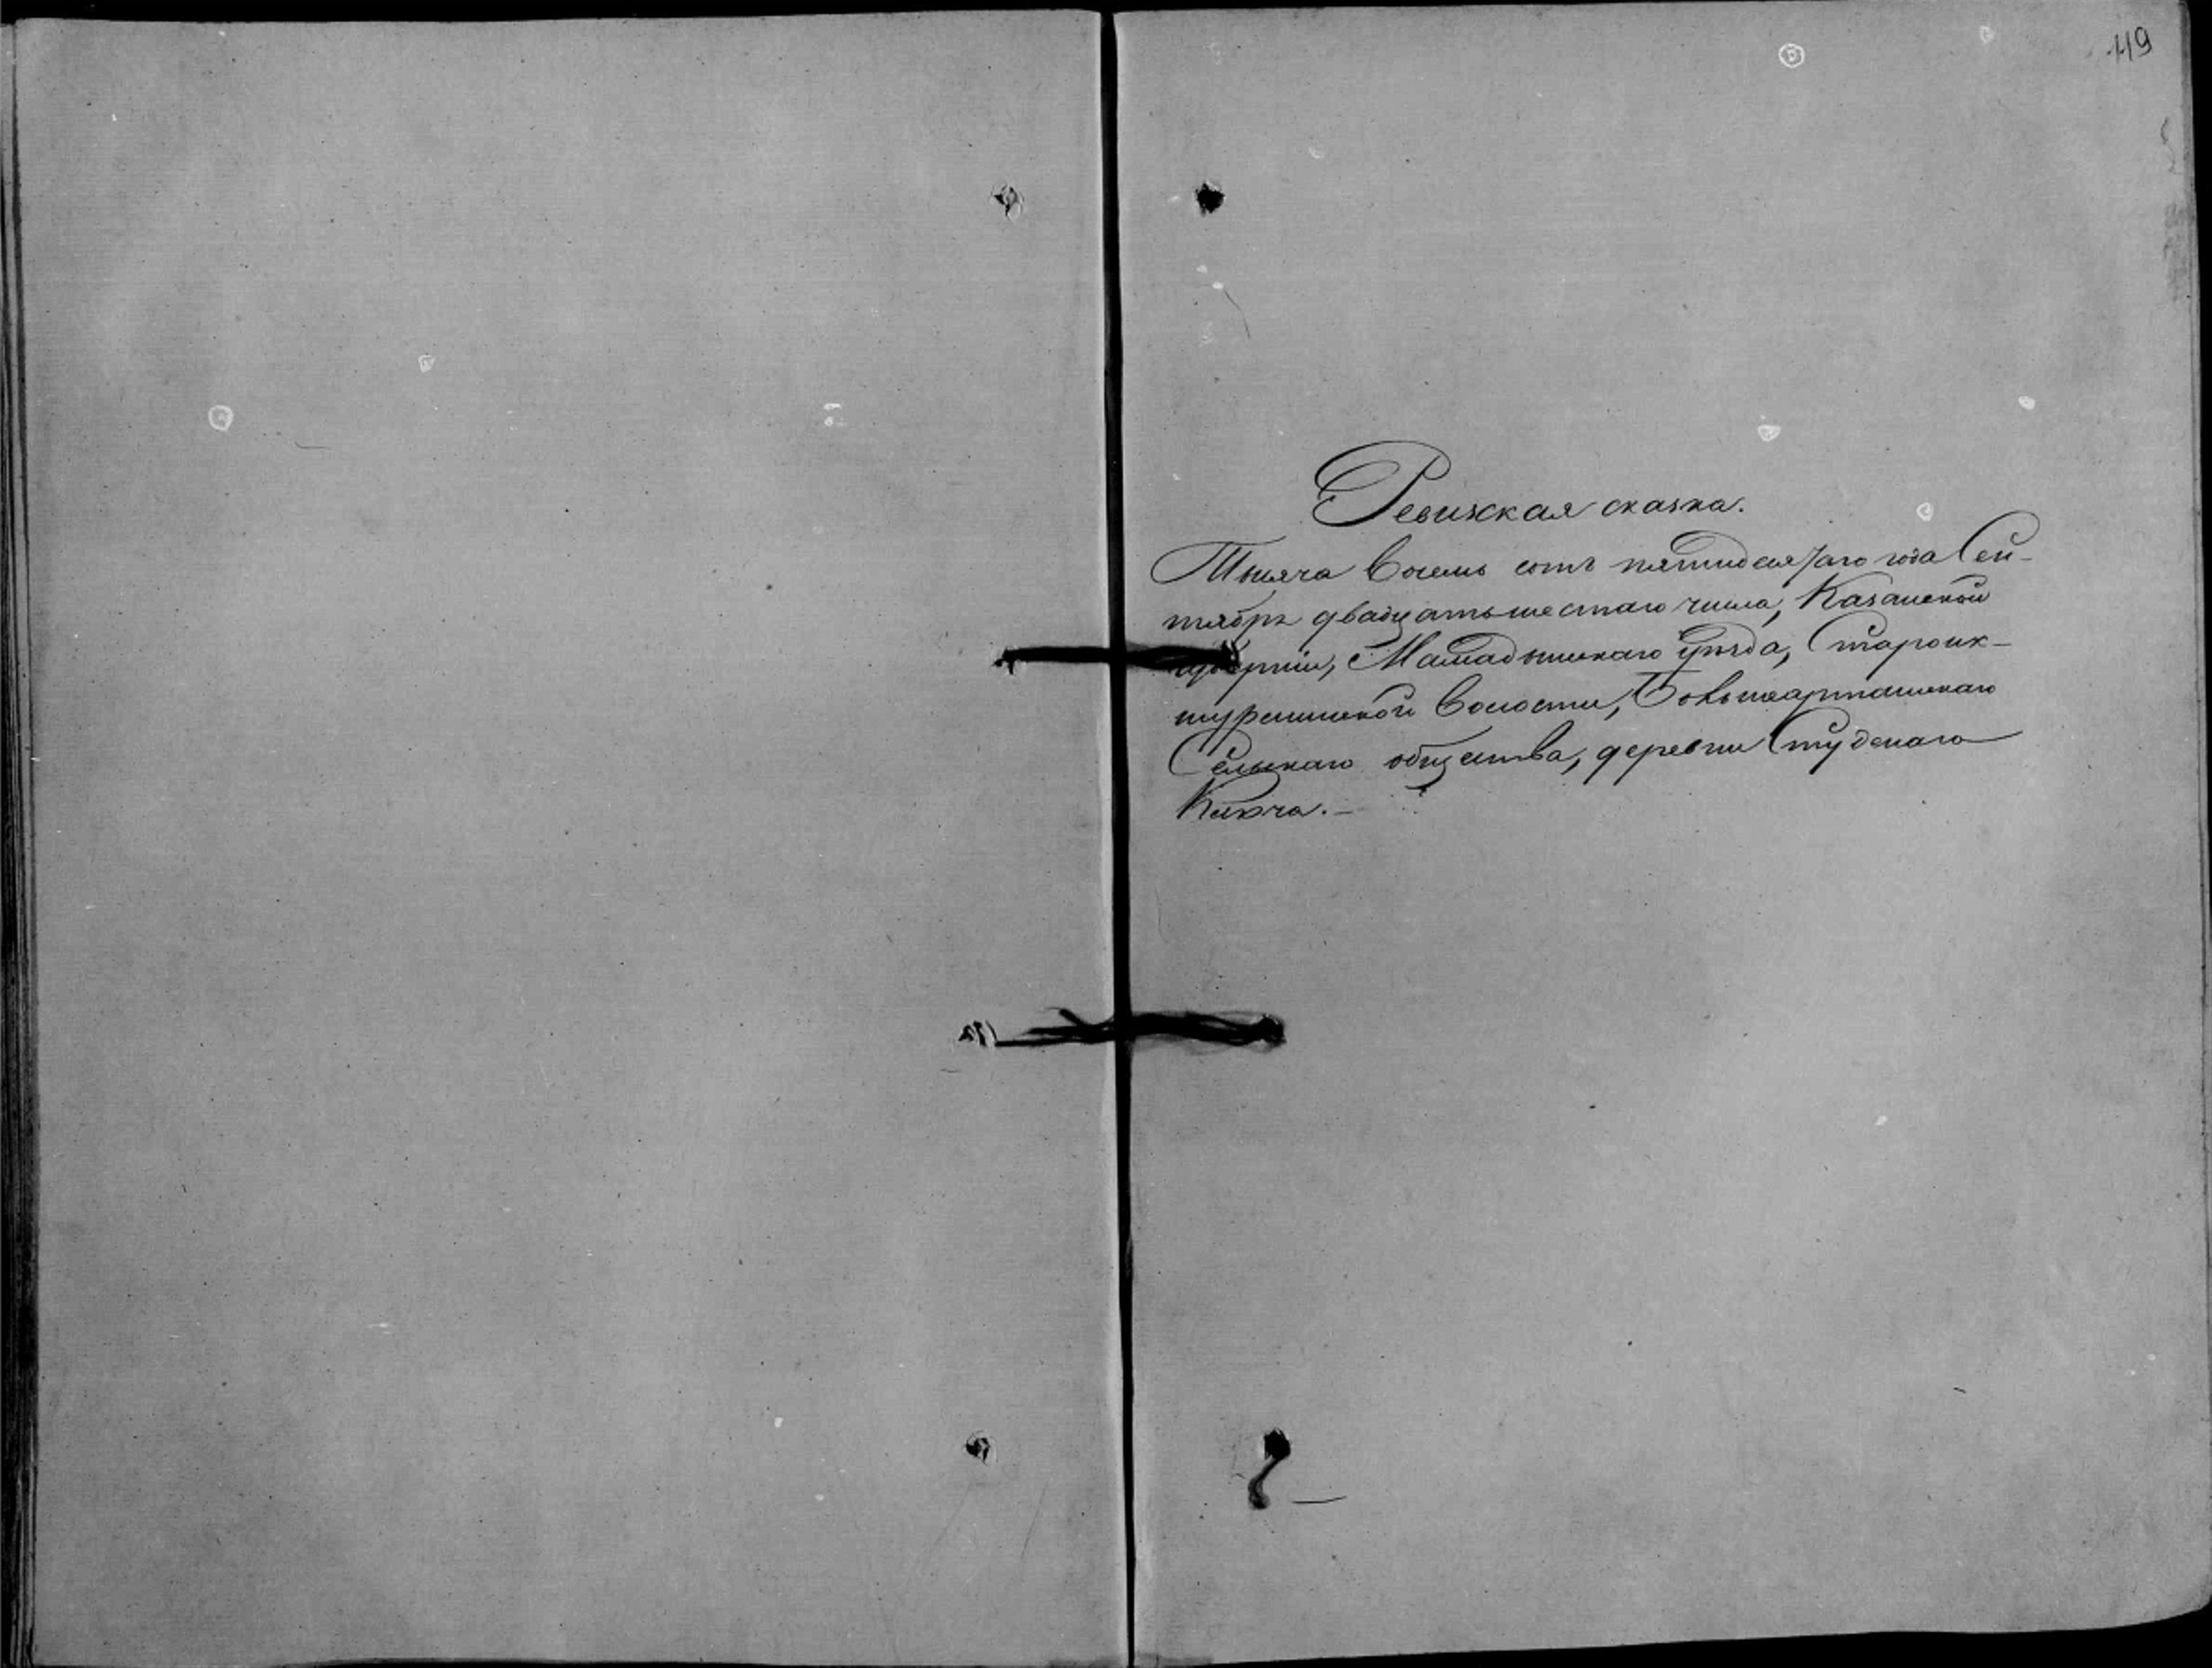 119
Ревизская сказка.
Тысяча восемь сотъ пятидесятаго года Сен-
тября двадцать шестаго числа, Казанской
губерніи, Мамадышскаго уѣзда, Староик-
шурминской волости, Большеарташскаго
Сельскаго общества, деревни Студенаго
Ключа.-